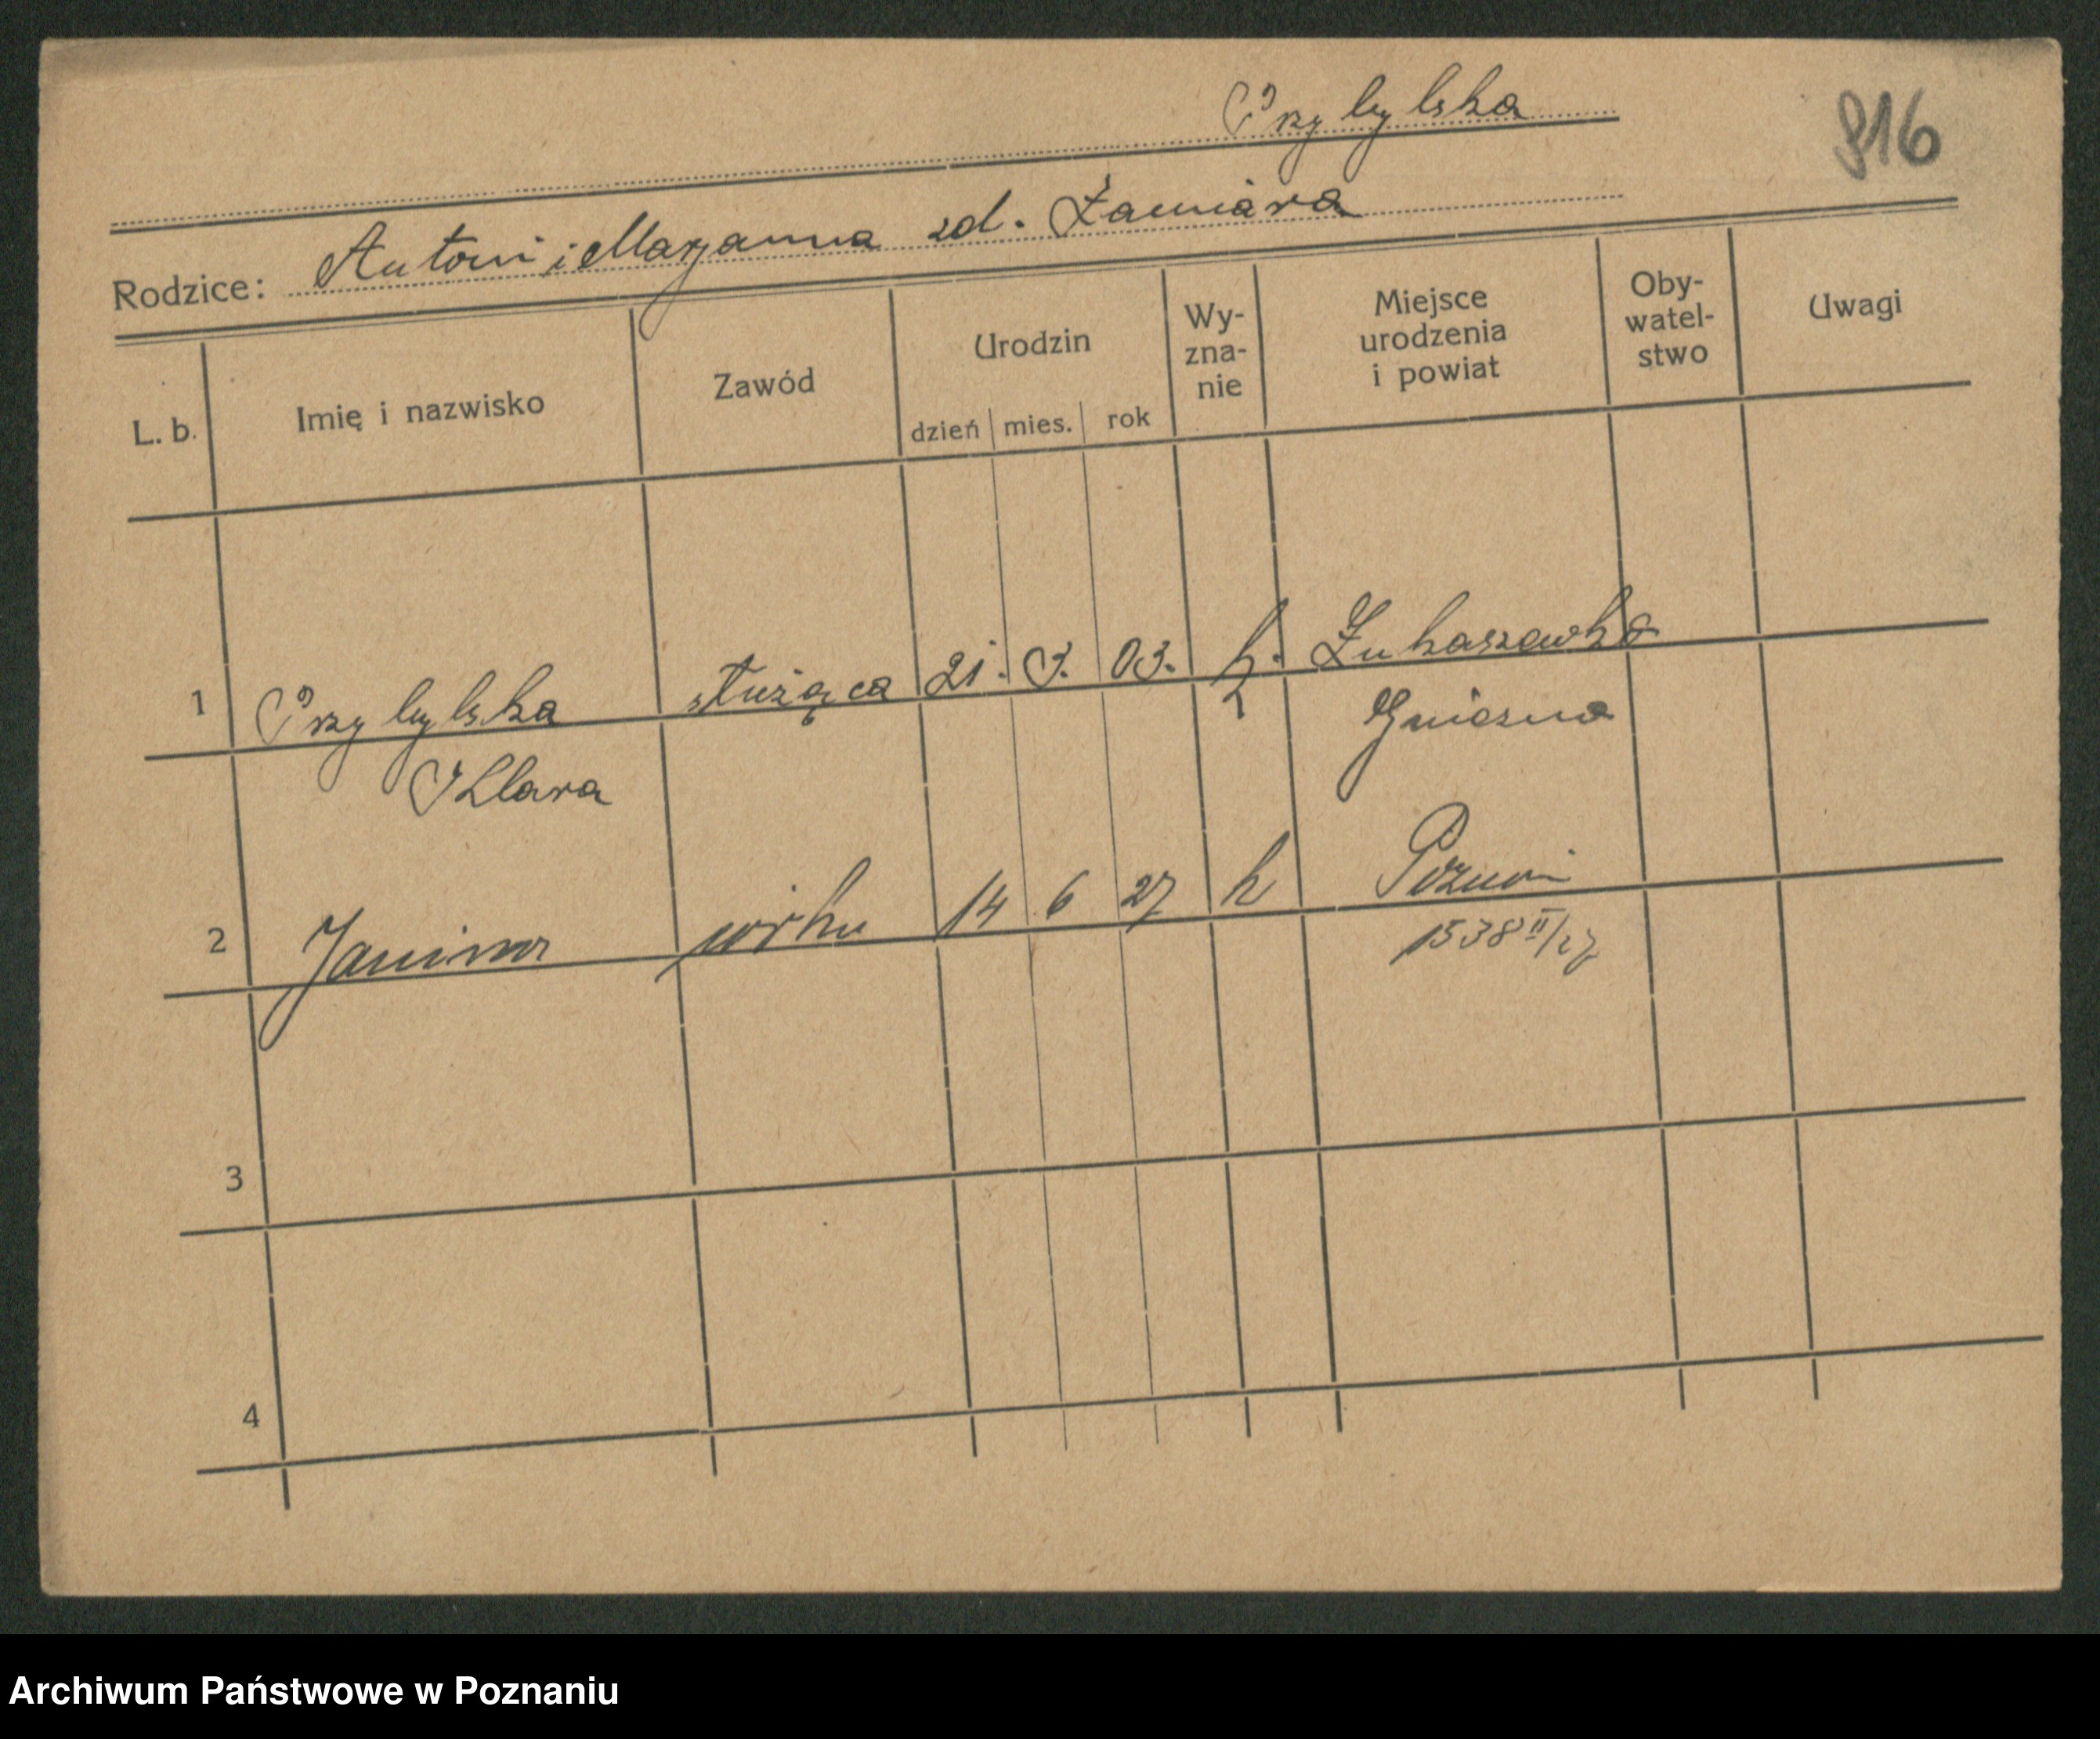 Przybylska
916
Rodzice: Antoni i Marjanna zd. Żamiara
L. b. Imię i nazwisko Zawód Urodzin dzień mies. rok Wy-zna-nie Miejsce urodzenia i powiat Oby-watel-stwo Uwagi
1 Przybylska służąca 21. 03. k. Łukaszewko
Klara Gniezno
2 Janina córka 14 6 27 k Poznań
1538 II/27
3
4
Archiwum Państwowe w Poznaniu